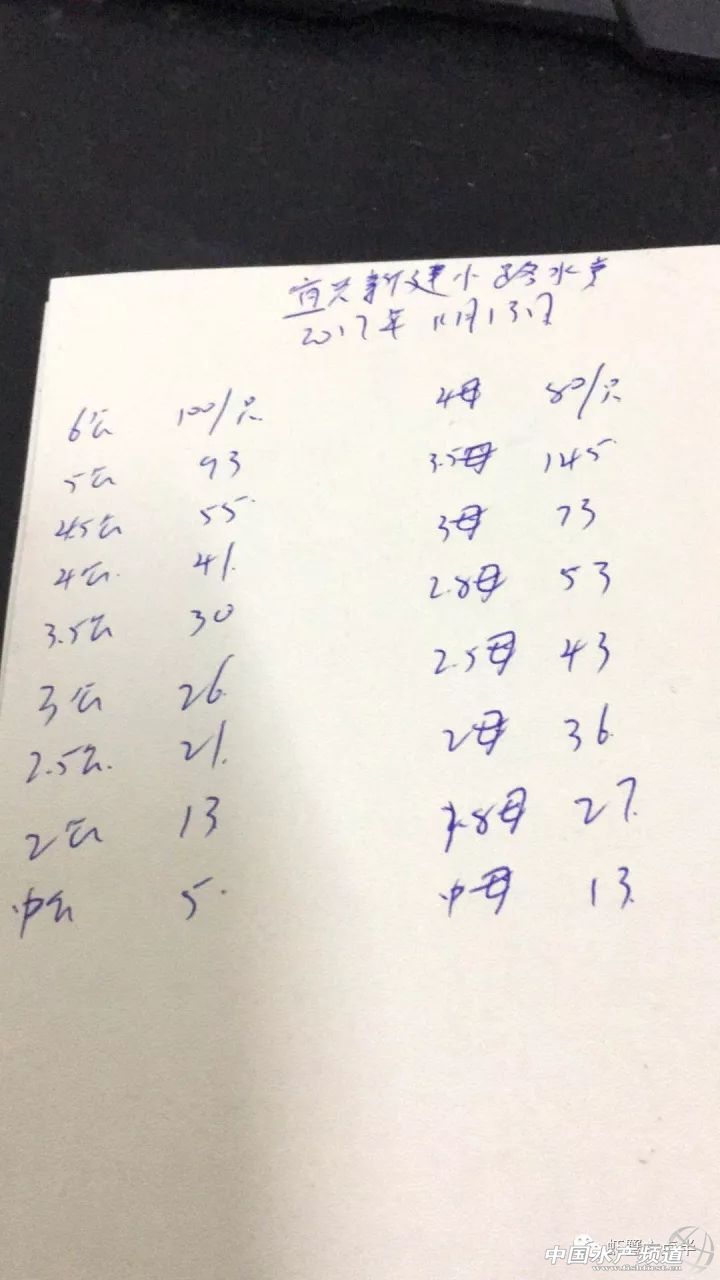 宜兴新建小路水产
2017年11月13日
6公 100/只 4母 80/只
5公 93 3.5母 145
4.5公 55 3母 73
4公 41 2.8母 53
3.5公 30 2.5母 43
3公 26 2母 36
2.5公 21 1.8母 27
2公 13 中母 13
中公 5
中国水产频道
www.fishfirst.cn